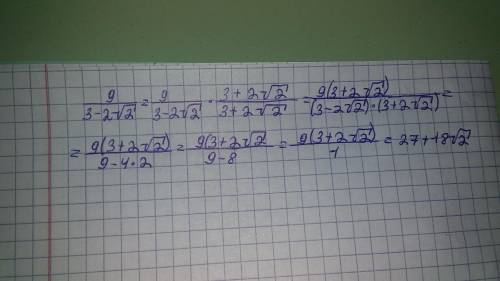 9/(3-2√2) = 9/(3-2√2) · (3+2√2)/(3+2√2) = 9(3+2√2)/((3-2√2)·(3+2√2)) =
= 9(3+2√2)/(9-4·2) = 9(3+2√2/(9-8) = 9(3+2√2)/1 = 27+18√2